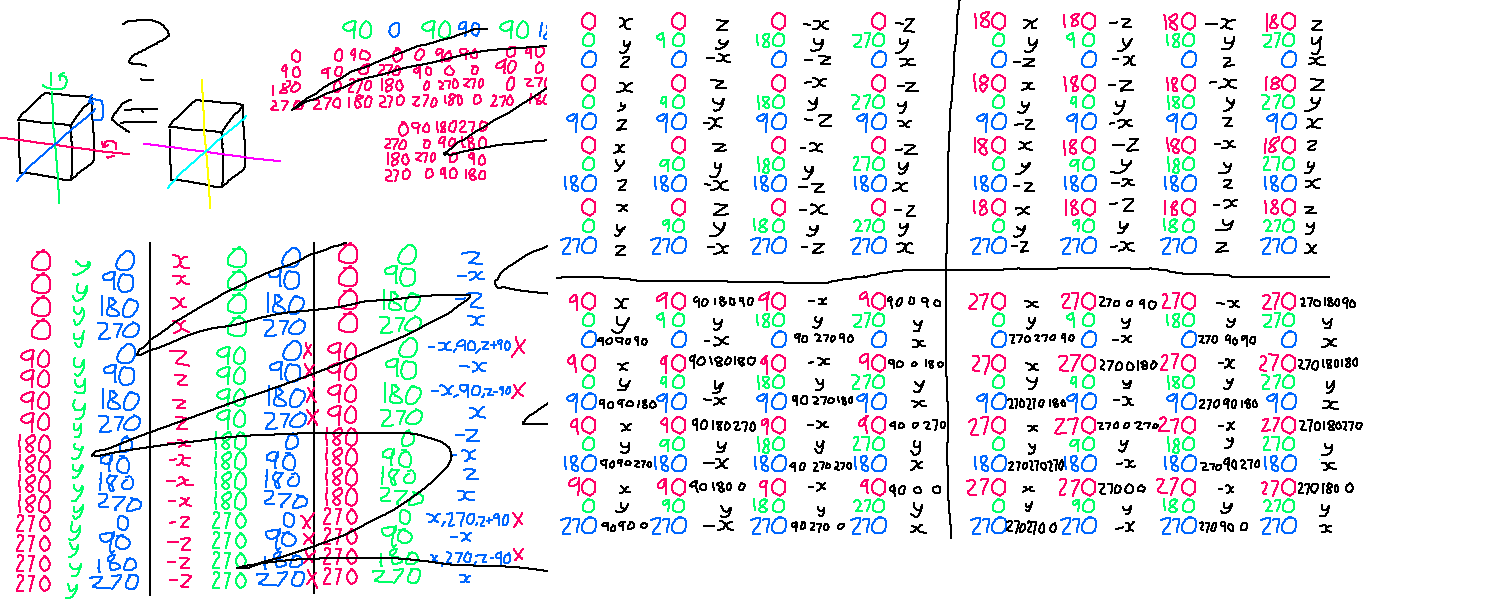 ?
90 0 90 90 90 18
0 0 90 0 0 90 90 0 90
90 90 0 270 90 0 0 90 0
180 0 270 180 0 270 270 0 27
270 270 180 270 270 180 0 270 180
0 90 180 270
270 0 90 180
180 270 0 90
270 0 90 180
0 y 0 x 0 0 0 0 z
0 y 90 x 0 90 0 90 -x
0 y 180 x 0 180 0 180 -z
0 y 270 x 0 270 0 270 x
90 y 0 z 90 0 x 90 0 -x,90,z+90 x
90 y 90 z 90 90 x 90 90 -x
90 y 180 z 90 180 x 90 180 -x,90,z-90 x
90 y 270 z 90 270 x 90 270 x
180 y 0 -x 180 0 180 0 -z
180 y 90 -x 180 90 180 90 -x
180 y 180 -x 180 180 180 180 z
180 y 270 -x 180 270 180 270 x
270 y 0 -z 270 0 x 270 0 x,270,z+90 x
270 y 90 -z 270 90 x 270 90 -x
270 y 180 -z 270 180 x 270 180 x,270,z-90 x
270 y 270 -z 270 270 x 270 270 x
0 x 0 z 0 -x 0 -z
0 y 90 y 180 y 270 y
0 z 0 -x 0 -z 0 x
0 x 0 z 0 -x 0 -z
0 y 90 y 180 y 270 y
90 z 90 -x 90 -z 90 x
0 x 0 z 0 -x 0 -z
0 y 90 y 180 y 270 y
180 z 180 -x 180 -z 180 x
0 x 0 z 0 -x 0 -z
0 y 90 y 180 y 270 y
270 z 270 -x 270 -z 270 x
180 x 180 -z 180 -x 180 z
0 y 90 y 180 y 270 y
0 -z 0 -x 0 z 0 x
180 x 180 -z 180 -x 180 z
0 y 90 y 180 y 270 y
90 -z 90 -x 90 z 90 x
180 x 180 -z 180 -x 180 z
0 y 90 y 180 y 270 y
180 -z 180 -x 180 z 180 x
180 x 180 -z 180 -x 180 z
0 y 90 y 180 y 270 y
270 -z 270 -x 270 z 270 x
90 x 90 90 180 90 90 -x 90 90 0 90
0 y 90 y 180 y 270 y
0 90 90 90 0 -x 0 90 270 90 0 x
90 x 90 90 180 180 90 -x 90 90 0 180
0 y 90 y 180 y 270 y
90 90 90 180 90 -x 90 90 270 180 90 x
90 x 90 90 180 270 90 -x 90 90 0 270
0 y 90 y 180 y 270 y
180 90 90 270 180 -x 180 90 270 270 180 x
90 x 90 90 180 0 90 -x 90 90 0 0
0 y 90 y 180 y 270 y
270 90 90 0 270 -x 270 90 270 0 270 x
270 x 270 270 0 90 270 -x 270 270 180 90
0 y 90 y 180 y 270 y
0 270 270 90 0 -x 0 270 90 90 0 x
270 x 270 270 0 180 270 -x 270 270 180 180
0 y 90 y 180 y 270 y
90 270 270 180 90 -x 90 270 90 180 90 x
270 x 270 270 0 270 270 -x 270 270 180 270
0 y 90 y 180 y 270 y
180 270 270 270 180 -x 180 270 90 270 180 x
270 x 270 270 0 0 270 -x 270 270 180 0
0 y 90 y 180 y 270 y
270 270 270 0 270 -x 270 270 90 0 270 x